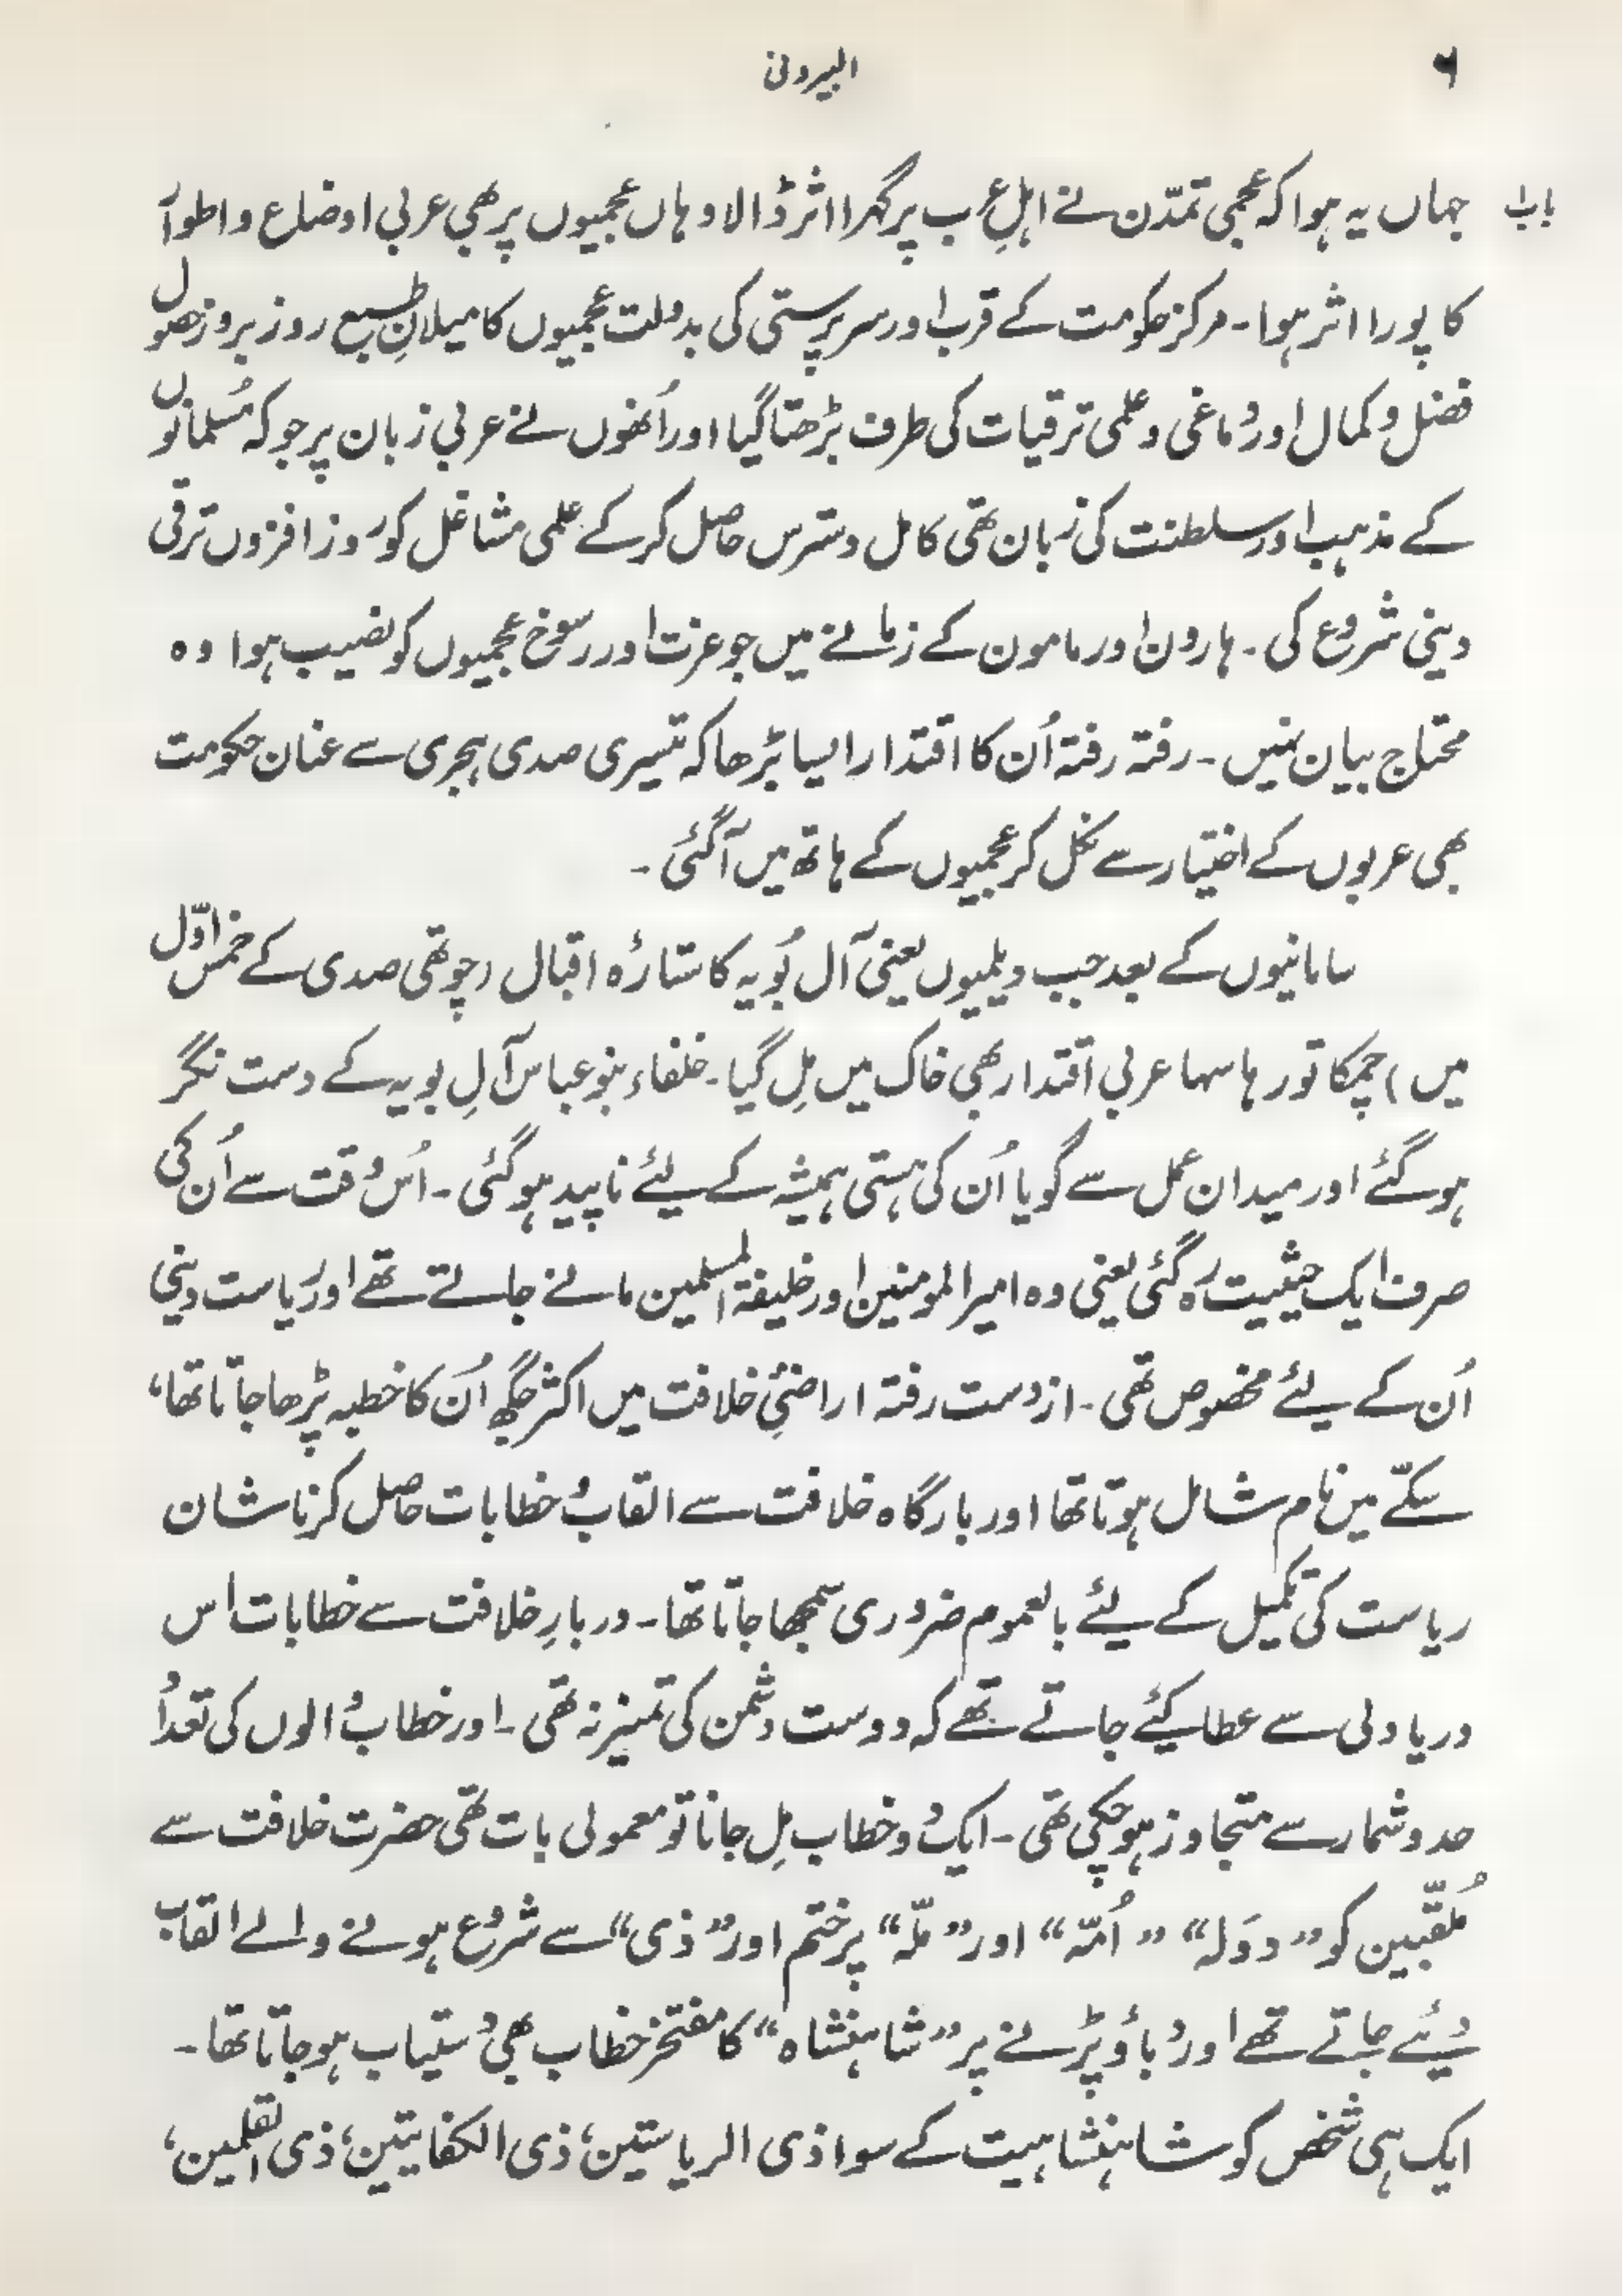 ۶
البیرونی
باب۱
جہاں یہ ہوا کہ عجمی تمدّن نے اہلِ عرب پر گہرا اثر ڈالا وہاں عجمیوں پر بھی عربی اوضاع و اطوار
کا پورا اثر ہوا۔ مرکز حکومت کے قرب اور سرپرستی کی بدولت عجمیوں کا میلانِ طبع روز بروز حصول
فضل و کمال اور دماغی و علمی ترقیات کی طرف بڑھتا گیا اور اُنھوں نے عربی زبان پر جو کہ مُسلمانوں
کے مذہب اور سلطنت کی زبان تھی کامل دسترس حاصل کر کے علمی مشاغل کو روز افزوں ترقی
دینی شروع کی۔ ہارون اور مامون کے زمانے میں جو عزت اور رسوخ عجمیوں کو نصیب ہوا وہ
محتاج بیان نہیں۔ رفتہ رفتہ اُن کا اقتدار ایسا بڑھا کہ تیسری صدی ہجری سے عنان حکومت
بھی عربوں کے اختیار سے نکل کر عجمیوں کے ہاتھ میں آگئی۔
سامانیوں کے بعد جب دیلمیوں یعنی آل بُویہ کا ستارہٴ اقبال (چوتھی صدی کے خمس اوّل
میں) چمکا تو رہا سہا عربی اقتدار بھی خاک میں مِل گیا۔ خلفاء بنو عباس آلِ بویہ کے دست نگر
ہوگئے اور میدان عمل سے گویا اُن کی ہستی ہمیشہ کے لیئے ناپید ہوگئی۔ اُس وقت سے اُن کی
صرف ایک حیثیت رہ گئی یعنی وہ امیر المومنین اور خلیفۃ المسلمین مانے جاتے تھے اور ریاست دینی
اُن کے لیئے مخصوص تھی۔ از دست رفتہ اراضیٔ خلافت میں اکثر جگہ اُن کا خطبہ پڑھا جاتا تھا،
سکّے میں نام شامل ہوتا تھا اور بارگاہ خلافت سے القاب و خطابات حاصل کرنا شان
ریاست کی تکمیل کے لیئے بالعموم ضروری سمجھا جاتا تھا۔ دربارِ خلافت سے خطابات اس
دریا دلی سے عطا کیئے جاتے تھے کہ دوست دشمن کی تمیز نہ تھی۔ اور خطاب والوں کی تعداد
حد و شمار سے متجاوز ہو چکی تھی۔ ایک دو خطاب مِل جانا تو معمولی بات تھی حضرت خلافت سے
مُلقّبین کو ”دوَلہ“ ”اُمّہ“ اور ”ملّہ“ پر ختم اور ”ذی“ سے شروع ہونے والے القاب
دیئے جاتے تھے اور دباؤ پڑنے پر ”شاہنشاہ“ کا مفتخر خطاب بھی دستیاب ہو جاتا تھا۔
ایک ہی شخص کو شاہنشاہیت کے سوا ذی الریاستین، ذی الکفایتین، ذی القلمین،